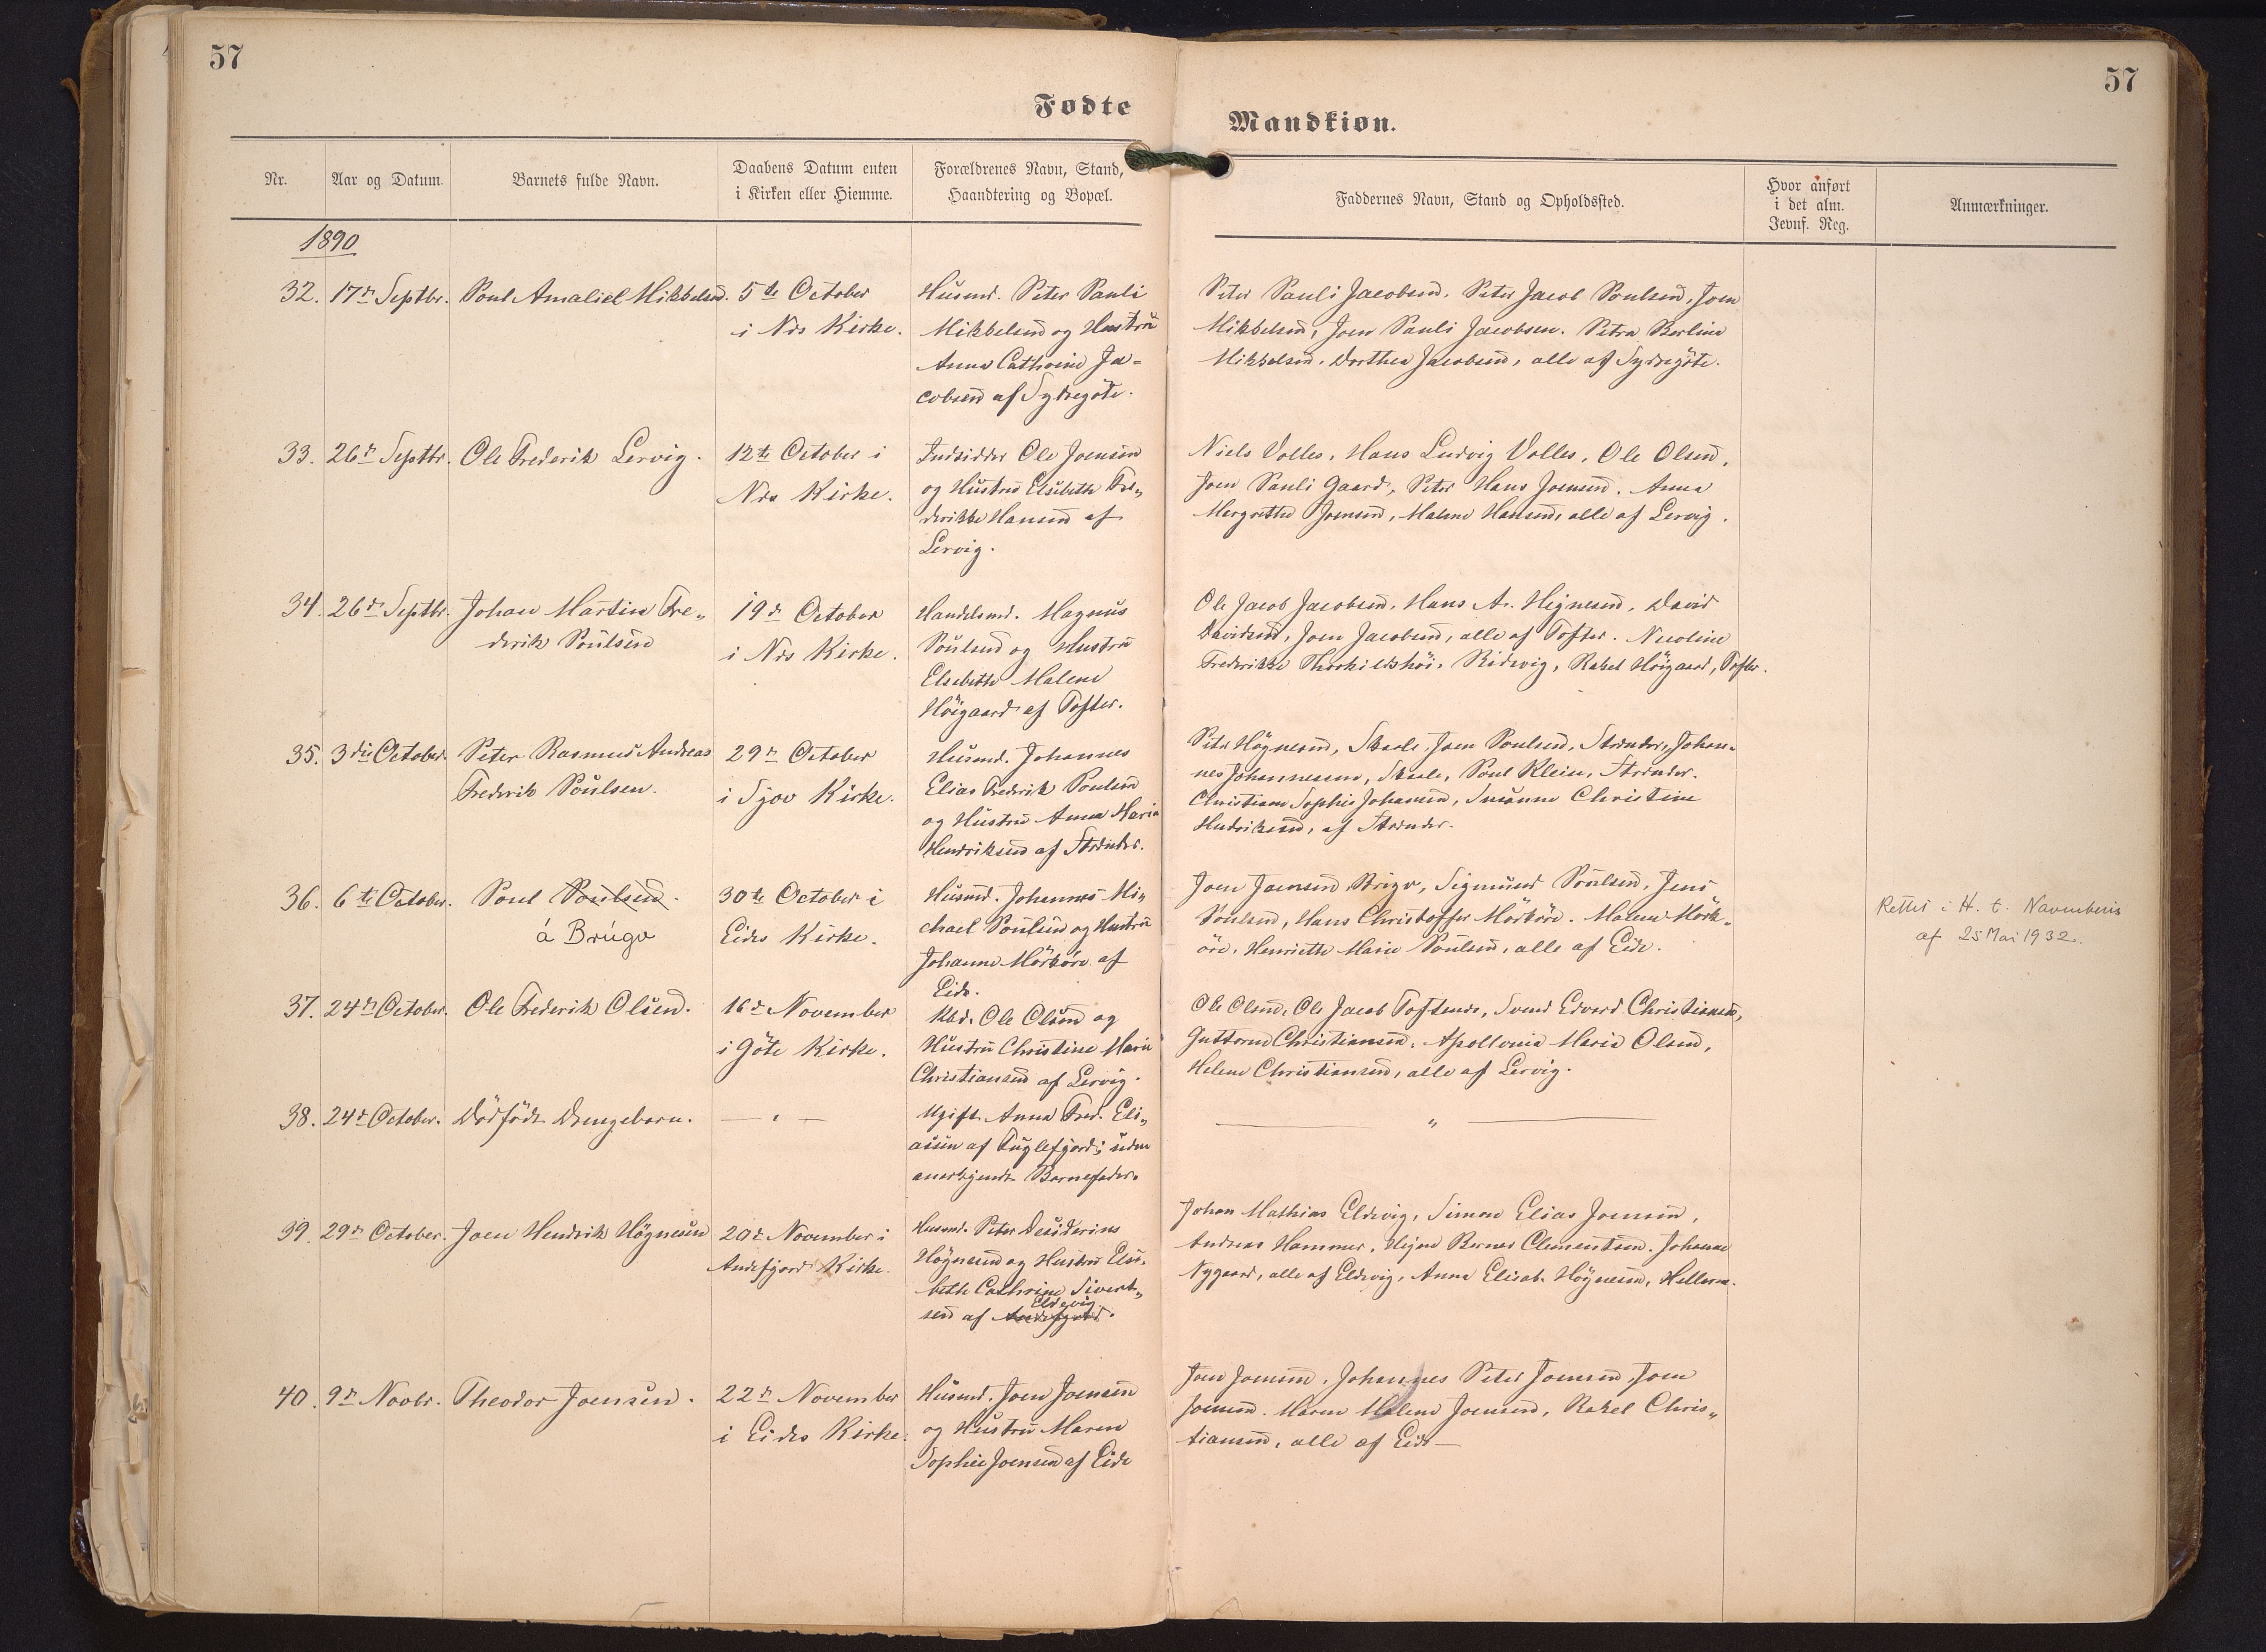 57
57
Fødte
Mandkiøn.
Nr.
Aar og Datum.
Barnets fulde Navn.
Daabens Datum enten
i Kirken eller Hiemme.
Forældrenes Navn, Stand,
Haandtering og Bopæl.
Faddernes Navn, Stand og Opholdssted.
Hvor anført
i det alm.
Jevnf. Reg.
Anmærkninger.
1890
32. 17de Septbr. Poul Amaliel Mikkelsen. 5te October
i Nes Kirke.
Husmd. Peter Pauli
Mikkelsen og Hustru
Anna Cathrine Ja-
cobsen af Sydregöte.
Peter Pauli Jacobsen, Peter Jacob Poulsen, Joen
Mikkelsen, Joen Pauli Jacobsen. Petra Berline
Mikkelsen, Dorthea Jacobsen, alle af Sydregöte.
33. 26de Septbr. Ole Frederik Lervig. 12te October i
Nes Kirke.
Indsidder Ole Joensen
og Hustru Elsebeth Fre„
derikke Hansen af
Lervig.
Niels Volles, Hans Ludvig Volles, Ole Olsen,
Joen Pauli Gaard, Peter Hans Joensen. Anna
Margrethe Joensen, Malene Hansen, alle af Lervig.
34. 26de Septbr. Johan Martin Fre„
derik Poulsen
19de October
i Nes Kirke.
Handelsmd. Magnus
Poulsen og Hustru
Elsebeth Malene
Höigaard af Tofter.
Ole Jacob Jacobsen, Hans A. Hignesen, David
Davidsen, Joen Jacobsen, alle af Tofter. Nicoline
Frederikke Thorkildshöi, Ridevig, Rakel Höigaard, Tofter.
35. 3die October. Peter Rasmus Andreas
Frederik Poulsen.
29de October
i Sjov Kirke.
Husmd. Johannes
Elias Frederik Poulsen
og Hustru Anna Maria
Hendriksen af Strender.
Peter Högnesen, Skaale, Joen Poulsen, Strender, Johan-
nes Johannessen, Skaale, Poul Klein, Strender.
Christiane Sophie Johansen, Susanne Christine
Hendriksen, af Strender.
36. 6te October. Poul Poulsen.
á Brúgv
30te October i
Eides Kirke.
Husmd. Johannes Mi„
chael Poulsen og Hustru
Johanne Mörköre af
Eide.
Joen Joensen Brigv, Sigmund Poulsen, Jens
Poulsen, Hans Christoffer Mörköre. Malene Mörk-
öre, Henriette Marie Poulsen, alle af Eide.
Rettet i H. t. Navnebevis
af 25 Mai 1932.
37. 24de October. Ole Frederik Olsen. 16de November
i Göte Kirke.
Kbd. Ole Olsen og
Hustru Christine Marie
Christiansen af Lervig.
Ole Olsen, Ole Jacob Toftende, Svend Edvard Christiansen,
Guttorm Christiansen. Apollonia Maria Olsen,
Helene Christiansen, alle af Lervig.
38. 24de October. Dödfödt Drengebarn. — „ —
Ugift Anna Fred. Eli„
assen af Fuglefjord; uden
anerkjendt Barnefader.
— „ —
39. 29de October. Joen Hendrik Högnesen 20de November i
Andefjord Kirke.
Husmd. Peter Desiderius
Högnesen og Hustru Else-
beth Cathrine Sivert„
sen af Andefjord.
Eldevig
Johan Mathias Eldevig, Simon Elias Joensen,
Andreas Hammer, Higne Berner Clementsen. Johanne
Nygaard, alle af Eldevig, Anna Elisab. Högnesen, Hellerne.
40. 9de Novbr. Theodor Joensen. 22de November
i Eides Kirke.
Husmd. Joen Joensen
og Hustru Maren
Sophie Joensen af Eide
Joen Joensen, Johannes Peter Joensen, Joen
Joensen. Maren Malene Joensen, Rakel Chris„
tiansen, alle af Eide —